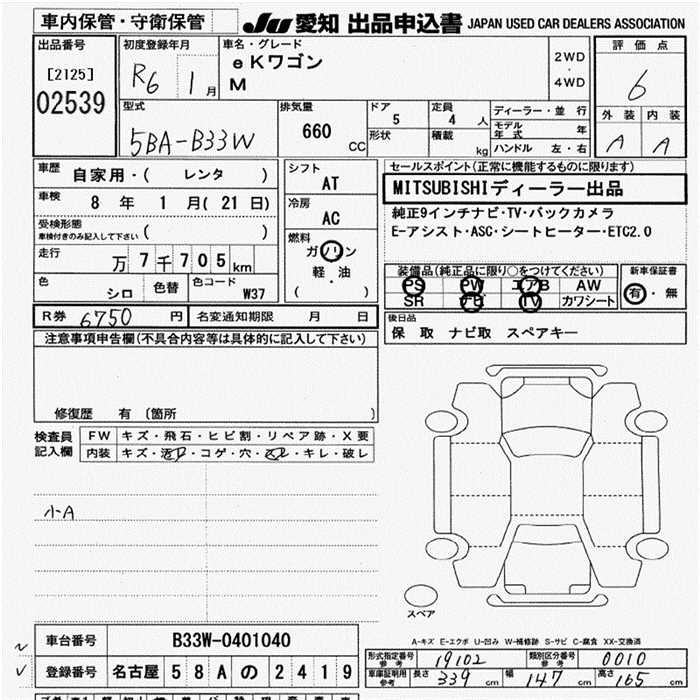 車内保管・守衛保管 JU 愛知 出品申込書 JAPAN USED CAR DEALERS ASSOCIATION
出品番号
[2125]
02539
初度登録年月
R6 1月
車名・グレード
eKワゴン
M
2WD
・
4WD
評価点
6
外装 内装
A A
型式
5BA-B33W
排気量
660 CC
ドア
5
形状
定員
4 人
積載
kg
ディーラー・並行
モデル年式 年
ハンドル 左・右
車歴
自家用・( レンタ )
車検
8 年 1 月( 21 日)
受検形態
車検付きのみ記入して下さい ( )
走行
万 7 千 7 0 5 km
色
シロ
色替
色コード
W37
シフト
AT
冷房
AC
燃料
ガソリン
軽・油
( )
セールスポイント(正常に機能するものに限ります)
MITSUBISHIディーラー出品
純正9インチナビ・TV・バックカメラ
E-アシスト・ASC・シートヒーター・ETC2.0
装備品(純正品に限り○をつけてください)
PS PW エアB AW
SR ナビ TV カワシート
新車保証書
有・無
R券 6750 円
名変通知期限 月 日
後日品
保 取 ナビ取 スペアキー
注意事項申告欄(不具合内容等は具体的に記入して下さい)
修復歴 有 〔箇所 〕
検査員
記入欄
FW キズ・飛石・ヒビ割・リペア跡・X要
内装 キズ・汚レ・コゲ・穴・スレ・キレ・破レ
小A
スペア
車台番号 B33W-0401040
登録番号 名古屋 5 8 A の 2 4 1 9
A-キズ E-エクボ U-凹み W-補修跡 S-サビ C-腐食 XX-交換済
形式指定番号
参考
19102
類別区分番号
参考
0010
車庫証明用
参考
長さ 339 cm 幅 147 cm 高さ 165 cm